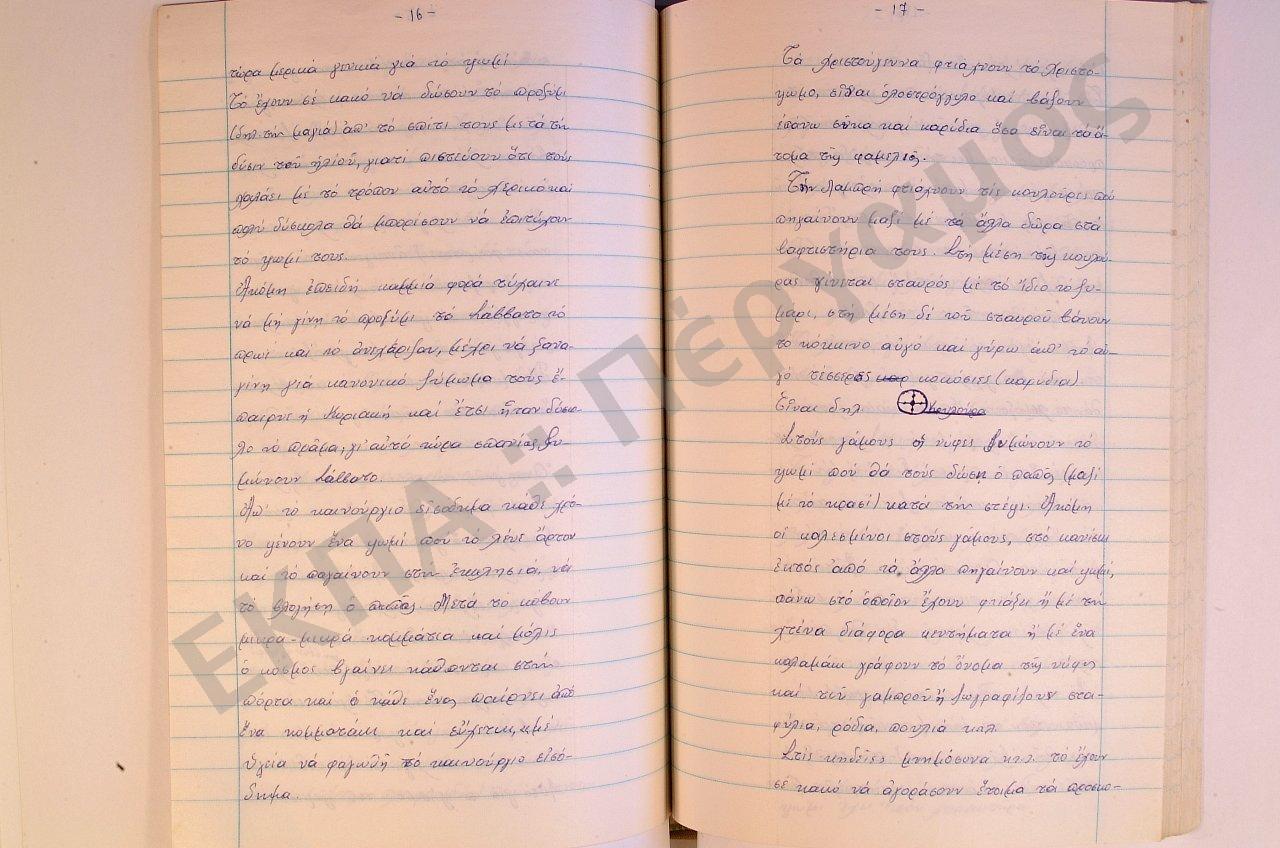 - 16 -
τώρα μερικά γενικά γιά τό ψωμί
Τό ἔχουν σέ κακό νά δώσουν τό προζύμι
(δηλ. τήν μαγιά) ἀπ' τό σπίτι τους μετά τή
δύσιν τοῦ ἡλίου, γιατί πιστεύουν ὅτι τούς
χαλάει μέ τό τρόπον αὐτό τό χερικό καί
πολύ δύσκολα θά μπορέσουν νά ἐπιτύχουν
τό ψωμί τους.
Ἀκόμη ἐπειδή καμμιά φορά τύχαινε
νά μή γίνη τό προζύμι τό Σάββατο τό
πρωί καί τό ἀνεχάριζαν, μέχρι νά ξανα-
γίνη γιά κανονικό ζύμωμα τούς ἔ-
παιρνε ἡ Κυριακή καί ἔτσι ἦταν δύσκο-
λο τό πρᾶμα, γι' αὐτό τώρα σπανίως ζυ-
μώνουν Σάββατο.
Ἀπ' τό καινούργιο εἰσόδημα κάθε χρό-
νο ψένουν ἕνα ψωμί πού τό λένε ἄρτον
καί τό παγαίνουν στήν ἐκκλησία, νά
τό βλογήση ὁ παπᾶς. Μετά τό κόβουν
μικρά-μικρά κομμάτια καί μόλις
ὁ κόσμος βγαίνει κάθονται στήν
πόρτα καί ὁ κάθε ἕνας παίρνει ἀπό
ἕνα κομματάκι καί εὔχεται, «μέ
ὑγεία νά φαγωθῆ τό καινούργιο εἰσό-
δημα.
- 17 -
Τά Χριστούγεννα φτιάχνουν τό Χριστό-
ψωμο, εἶναι ὁλοστρόγγυλο καί βάζουν
ἐπάνω σῦκα καί καρύδια ὅσα εἶναι τά ἄ-
τομα τῆς φαμελιᾶς.
Τήν Λαμπρή φτιάχνουν τίς κουλοῦρες πού
πηγαίνουν μαζί μέ τά ἄλλα δῶρα στά
βαφτιστήρια τους. Στή μέση τῆς κουλού-
ρας γίνεται σταυρός μέ τό ἴδιο τό ζυ-
μάρι, στή μέση δέ τοῦ σταυροῦ βάνουν
τό κόκκινο αὐγό καί γύρω ἀπ' τό αὐ-
γό τέσσερες καρ κοκόσιες (καρύδια).
Εἶναι δηλ. Κουλούρα
Στούς γάμους οἱ νύφες ζυμώνουν τό
ψωμί πού θά τούς δώση ὁ παπᾶς (μαζί
μέ τό κρασί) κατά τήν στέψι. Ἀκόμη
οἱ καλεσμένοι στούς γάμους, στό κανίσκι
ἐκτός ἀπό τά ἄλλα πηγαίνουν καί ψωμί,
πάνω στό ὁποῖον ἔχουν φτιάξει ἤ μέ τήν
χτένα διάφορα κεντήματα ἤ μέ ἕνα
καλαμάκι γράφουν τό ὄνομα τῆς νύφης
καί τοῦ γαμπροῦ ἤ ζωγραφίζουν στα-
φύλια, ρόδια, πουλιά κτλ.
Στίς κηδεῖες μνημόσυνα κτλ. τό ἔχουν
σέ κακό νά ἀγοράσουν ἕτοιμα τά προσκο-
ΕΚΠΑ :: Πέργαμος